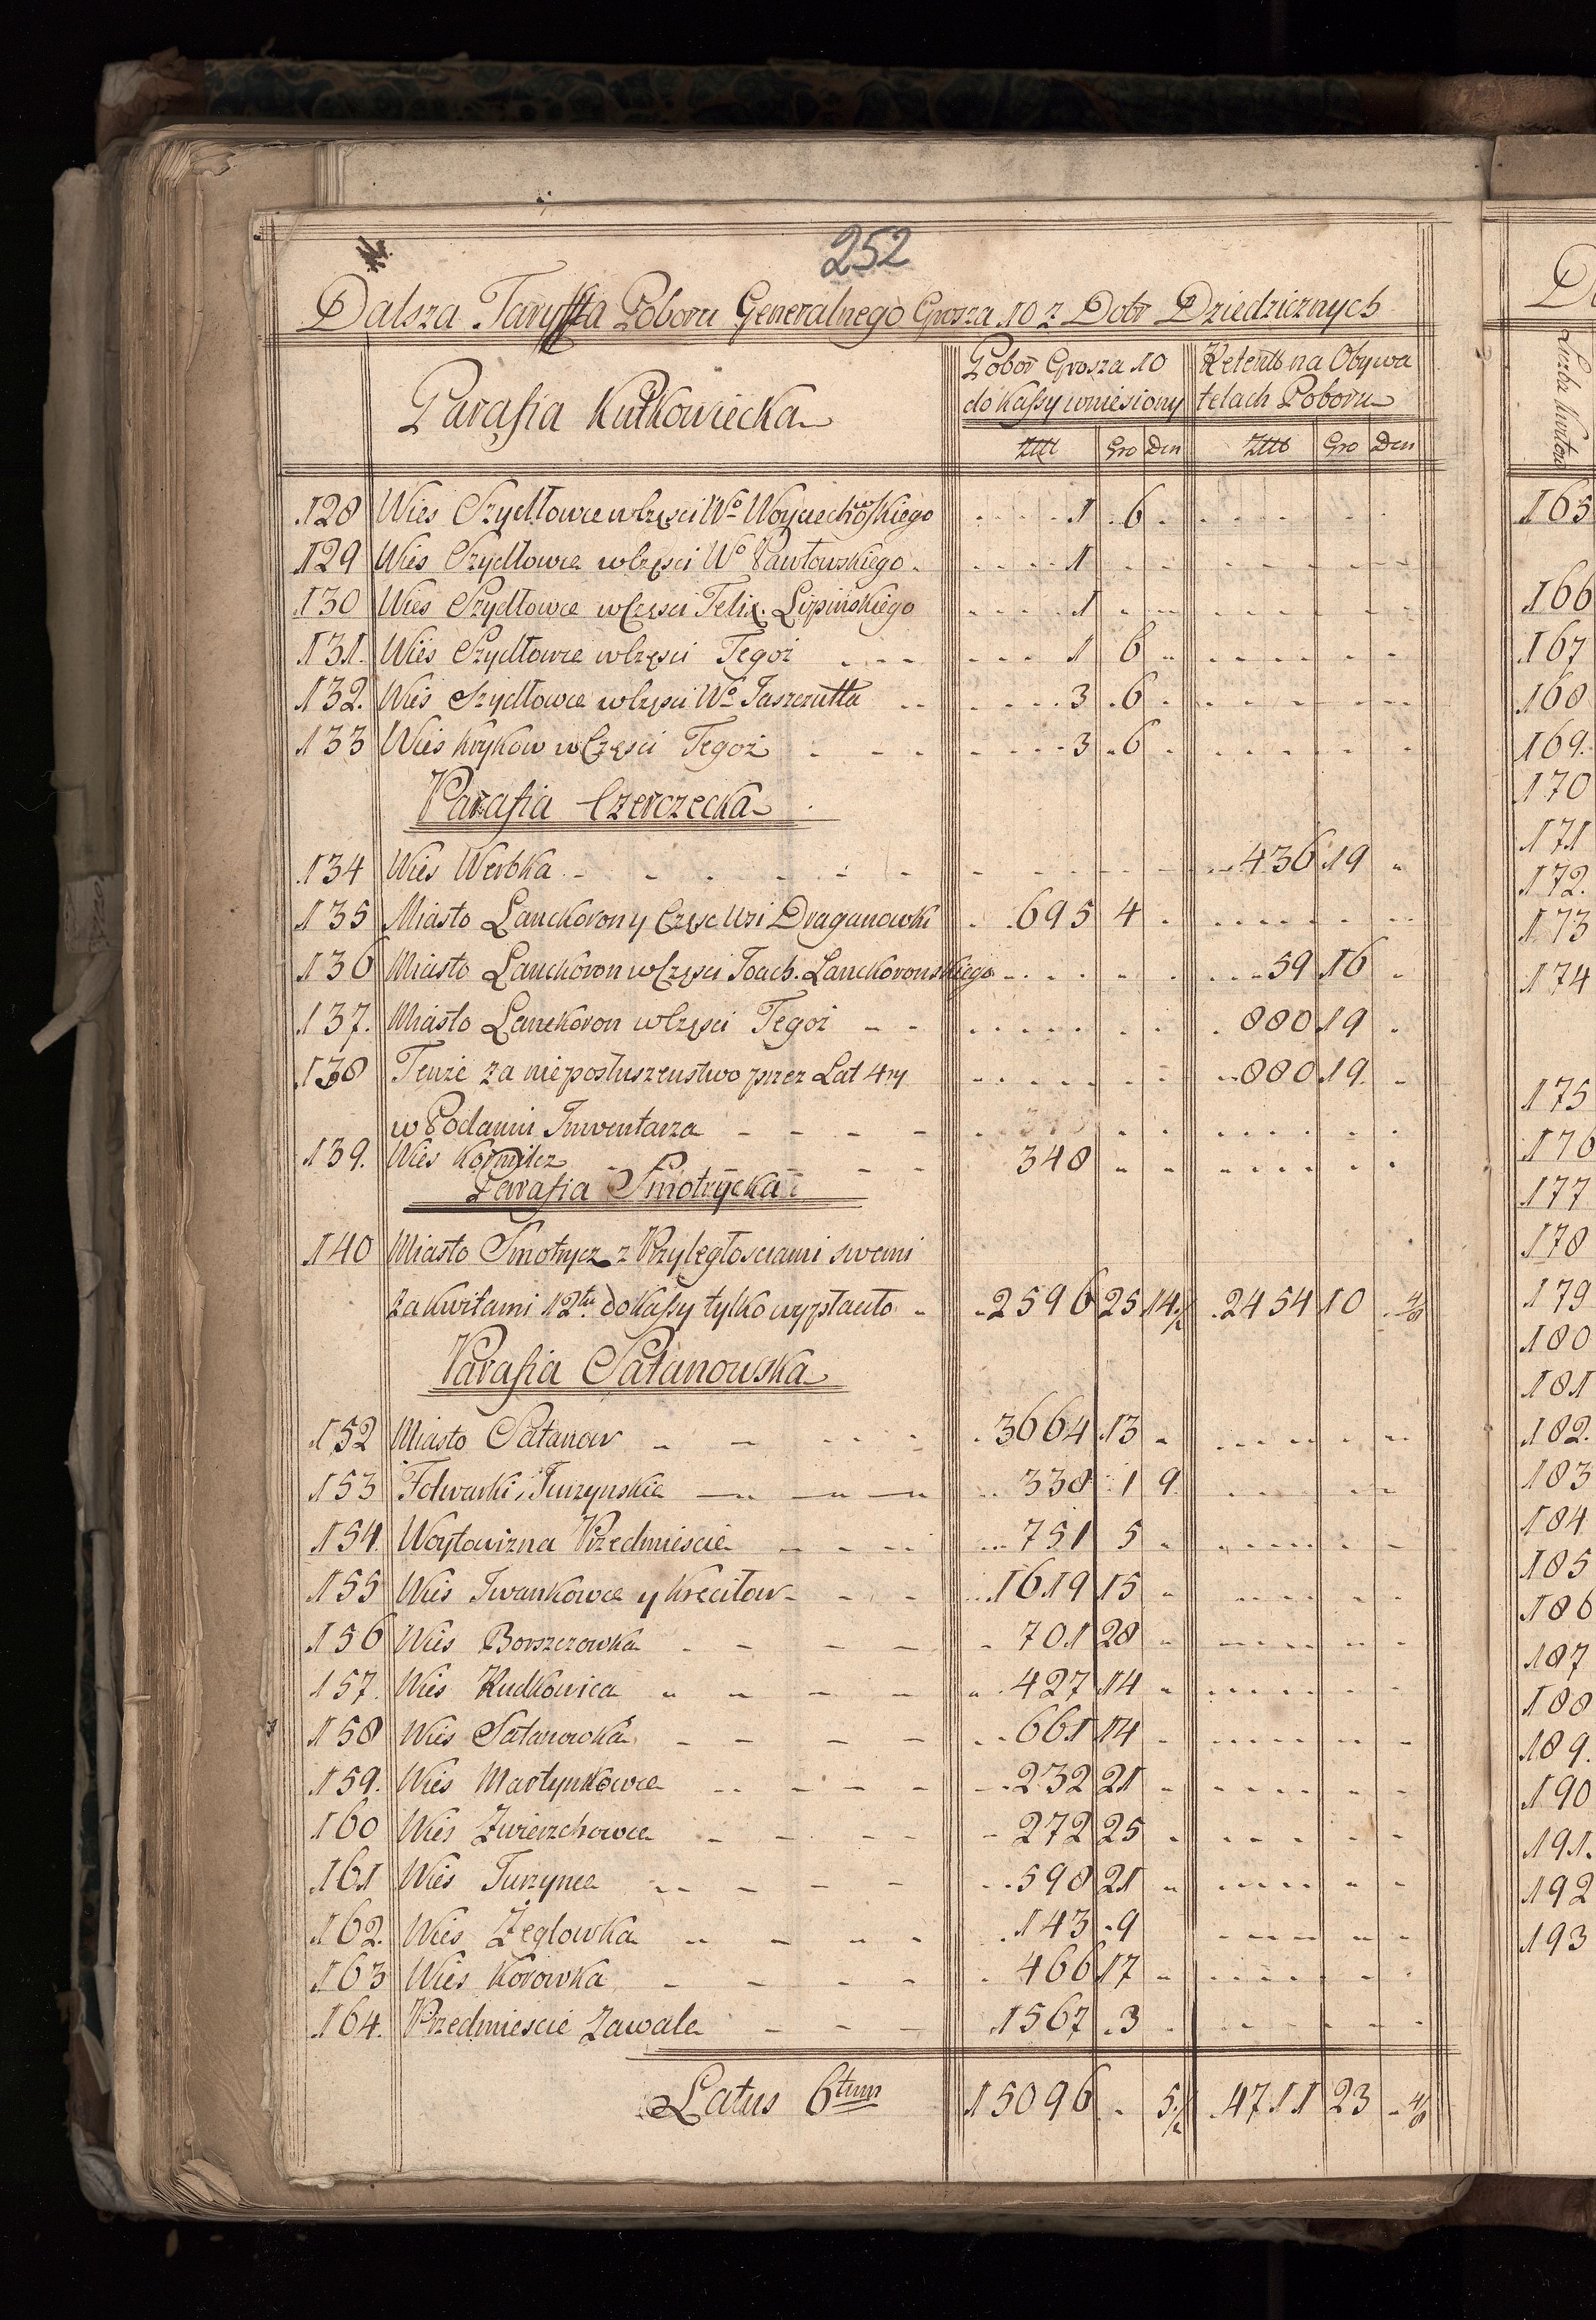 252
Dalsza Taryffa Poboru Generalnego Grosza 10 z Dobr Dziedzicznych
Parafia Kutkowiecka
Pobor Grosza 10 do Kassy wniesiony
Retent na Obywatelach Poboru
Złł Gro Den Złł Gro Den
128 Wies Szydłowce w Częsci Wo Woyciechowskiego 1 6
129 Wies Szydłowce w Częsci Wo Pawłowskiego 1
130 Wies Szydłowce w Częsci Felix. Lipińskiego 1
131. Wies Szydłowce w Częsci Tegoż 1 6
132. Wies Szydłowce w Częsci Wo Jaszczułta 3 6
133 Wies Krykow w Częsci Tegoż 3 6
Parafia Czerczecka
134 Wies Werbka 436 19
135 Miasto Lanckorony Częsc Wsi Draganowki 695 4
136 Miasto Lanckoron w Częsci Joach. Lanckoronskiego 59 16
137. Miasto Lanckoron w Częsci Tegoż 880 19
138 Tenże za nieposłuszenstwo przez Lat 4ry 880 19
w Podaniu Inwentarza
139. Wies Kormilcz 348
Parafia Smotrycka
140 Miasto Smotrycz z Przyległosciami swemi
za kwitami 12tu do Kassy tylko wypłaciło 2596 25 14 1/2 2454 10 4/8
Parafia Satanowska
152 Miasto Satanow 3664 13
153 Folwarki, Jurzynskie 338 1 9
154. Woytowizna Przedmiescie 751 5
155 Wies Iwankowce y Kręciłow 1619 15
156 Wies Borszczowka 701 28
157. Wies Kudkowice 427 14
158 Wies Satanowka 661 14
159. Wies Martynkowce 232 21
160 Wies Zwierzchowce 272 25
161 Wies Jurzynce 598 21
162. Wies Żeglowka 143 9
163 Wies Korowka 466 17
164. Przedmiescie Zawale 1567 3
Latus 6tum 15096 5 1/2 4711 23 4/8
Liczba Kwitow
165
166
167
168
169.
170
171
172.
173
174
175
176
177
178
179
180
181
182.
183
184
185
186
187
188
189.
190
191.
192
193